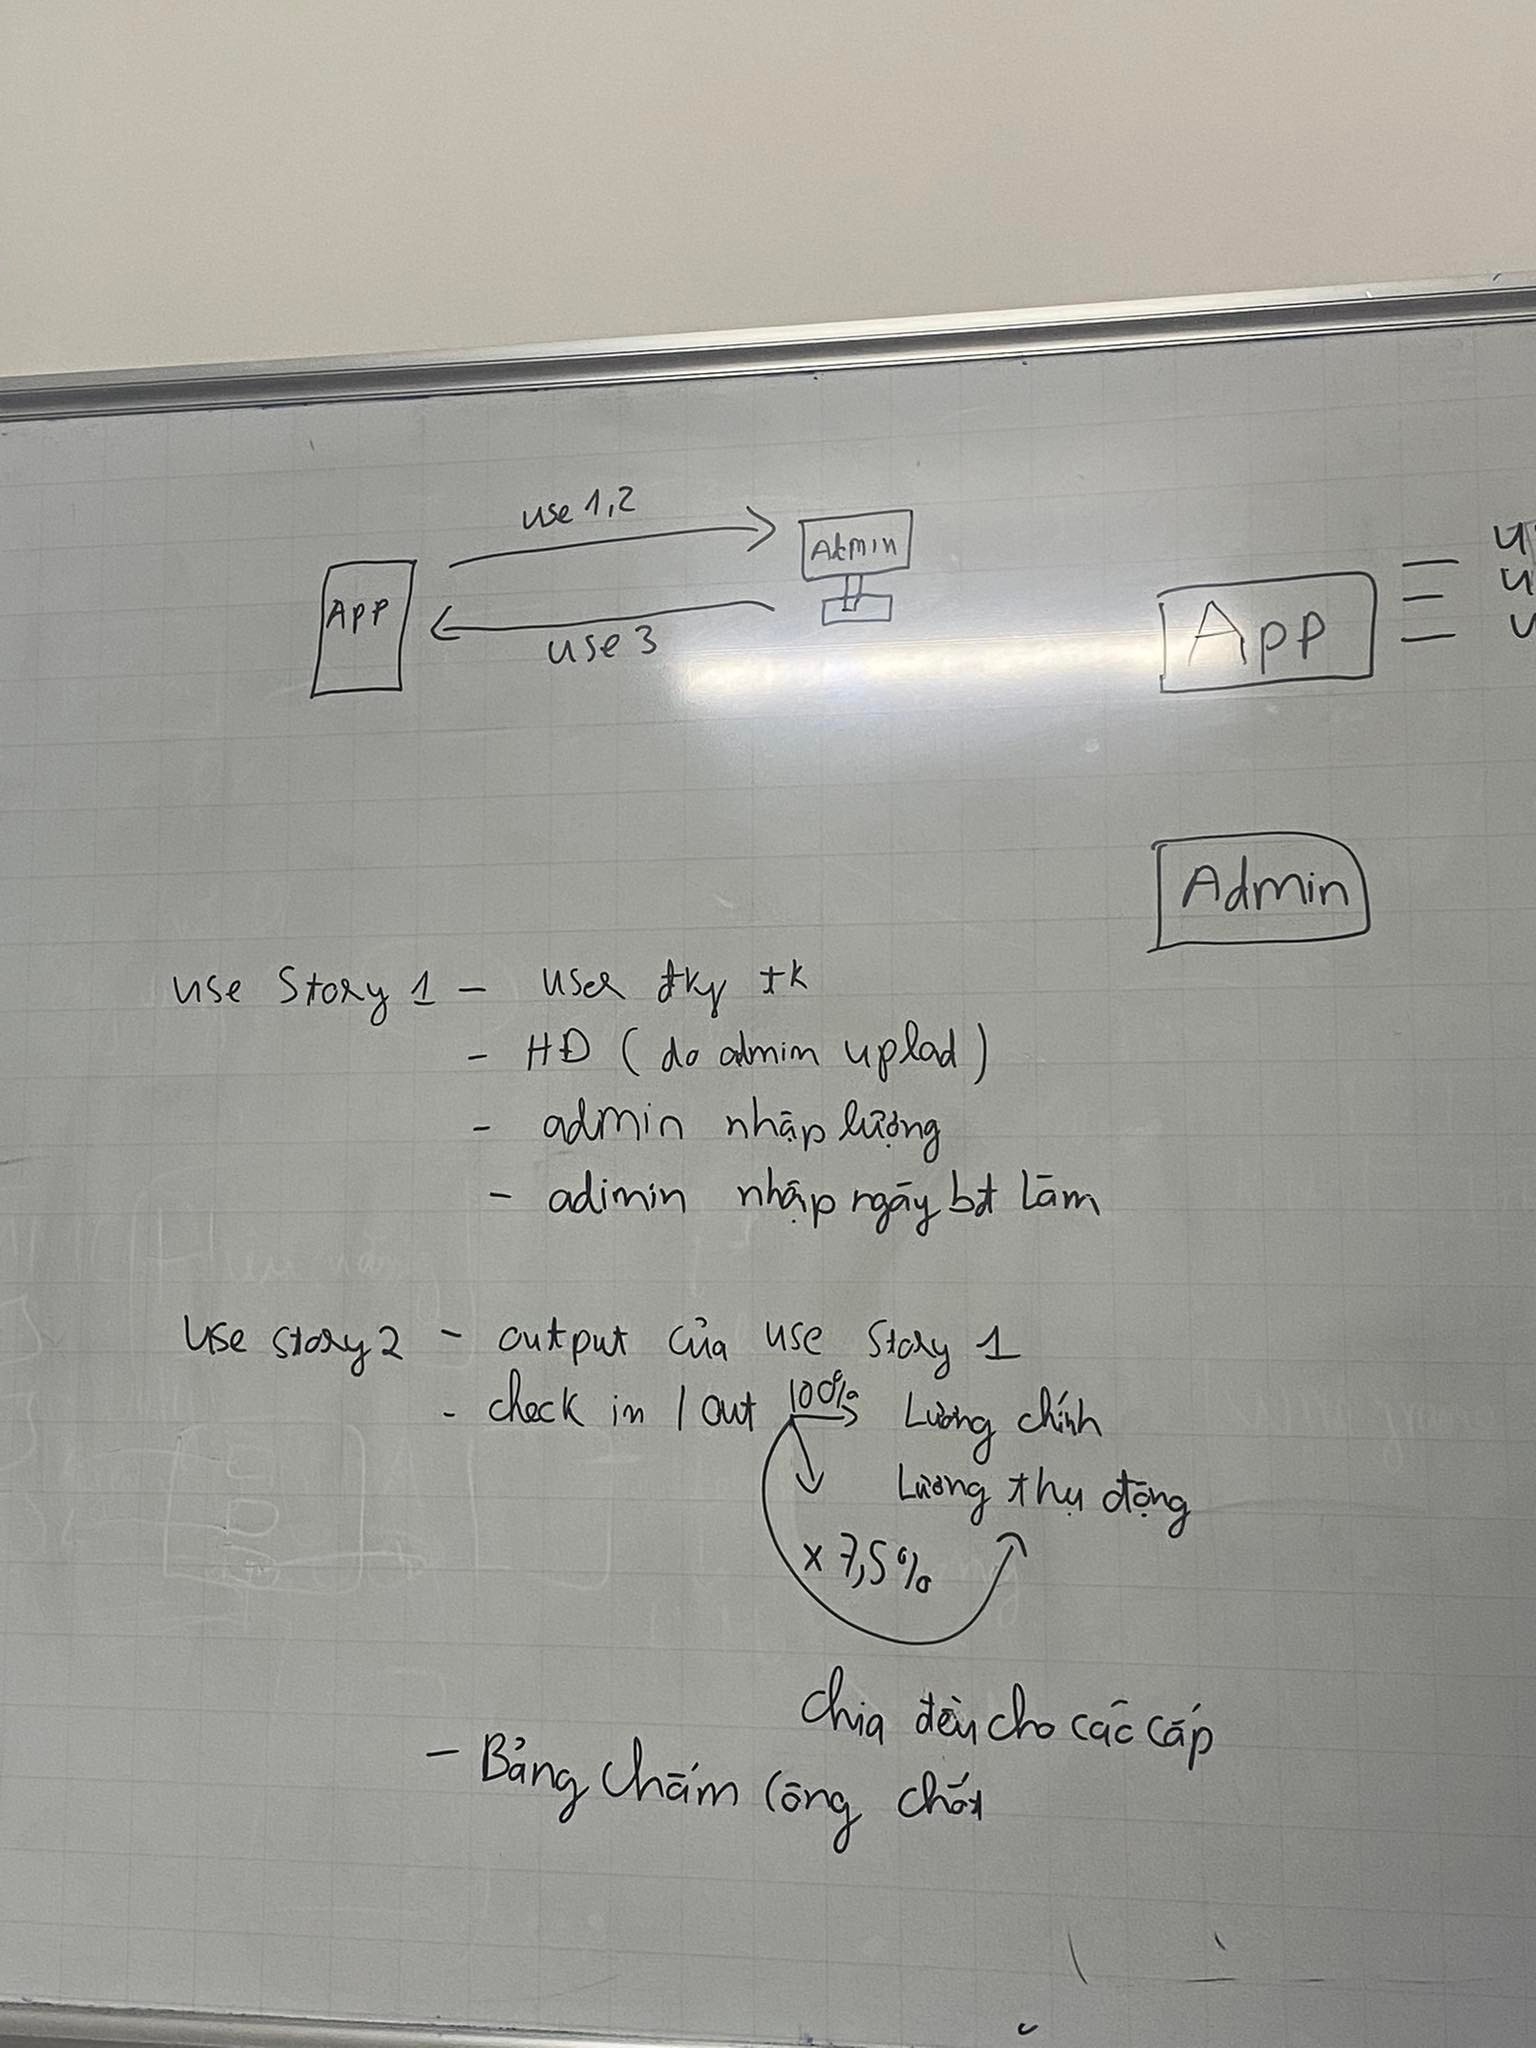 use 1,2
Admin
App
use 3
App
Admin
use story 1 - user đky tk
- HĐ (do admin uplad)
- admin nhập lương
- adimin nhập ngày bđ làm
use story 2 - output của use story 1
- check in / out 100% Lương chính
Lương thụ động
x 7,5%
chia đều cho các cấp
- Bảng chấm công chốt